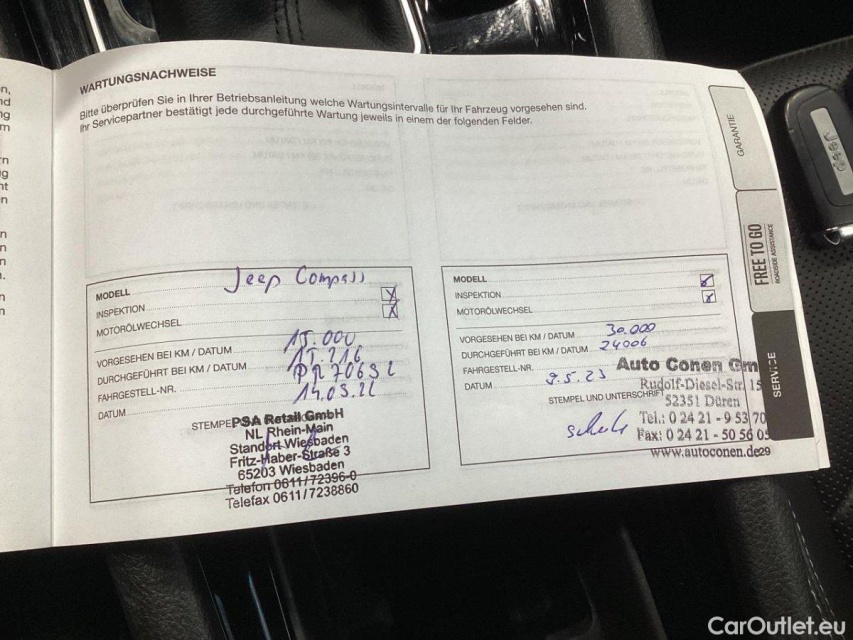 WARTUNGSNACHWEISE
Bitte überprüfen Sie in Ihrer Betriebsanleitung welche Wartungsintervalle für Ihr Fahrzeug vorgesehen sind.
Ihr Servicepartner bestätigt jede durchgeführte Wartung jeweils in einem der folgenden Felder.
MODELL Jeep Compass
INSPEKTION
MOTORÖLWECHSEL
VORGESEHEN BEI KM / DATUM 15.000
DURCHGEFÜHRT BEI KM / DATUM 15.216
FAHRGESTELL-NR.
DATUM 14.03.22
PSA Retail GmbH
NL Rhein-Main
Standort Wiesbaden
Fritz-Haber-Straße 3
65203 Wiesbaden
Telefon 0611/72396-0
Telefax 0611/7238860
MODELL
INSPEKTION
MOTORÖLWECHSEL
VORGESEHEN BEI KM / DATUM 30.000
DURCHGEFÜHRT BEI KM / DATUM 24006
FAHRGESTELL-NR.
DATUM 9.5.23
STEMPEL UND UNTERSCHRIFT
Auto Conen Gm
Rudolf-Diesel-Str. 15
52351 Düren
Tel.: 0 24 21 - 9 53 70
Fax: 0 24 21 - 50 56 05
www.autoconen.de29
GARANTIE
FREE TO GO
ROADSIDE ASSISTANCE
SERVICE
Jeep
CarOutlet.eu